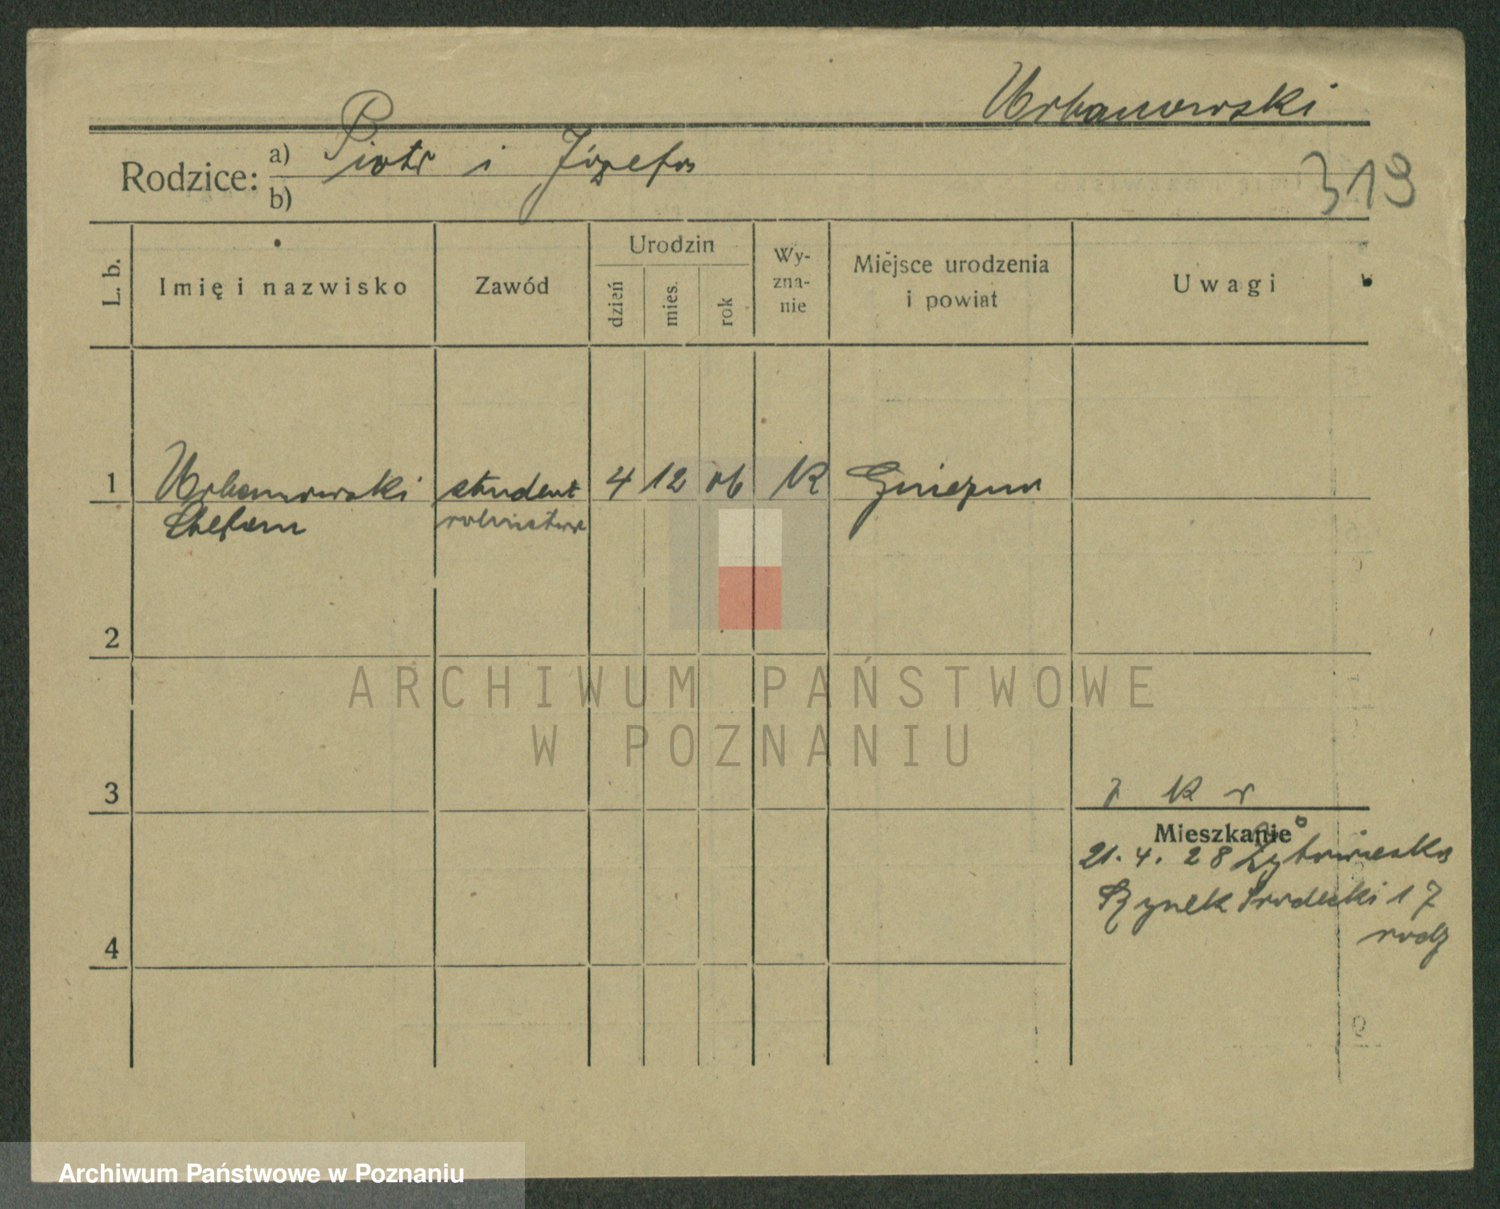 Urbanowski
Rodzice: a) Piotr i Józefa
b)
319
L. b.
Imię i nazwisko
Zawód
Urodzin
dzień
mies.
rok
Wy-
zna-
nie
Miejsce urodzenia
i powiat
Uwagi
1 Urbanowski student 4 12 06 K Gniezno
Stefan rolnictwa
2
ARCHIWUM PAŃSTWOWE
W POZNANIU
3
K r
Mieszkanie
21. 4. 28
Rynek Śródecki 17
rodz
4
9
Archiwum Państwowe w Poznaniu